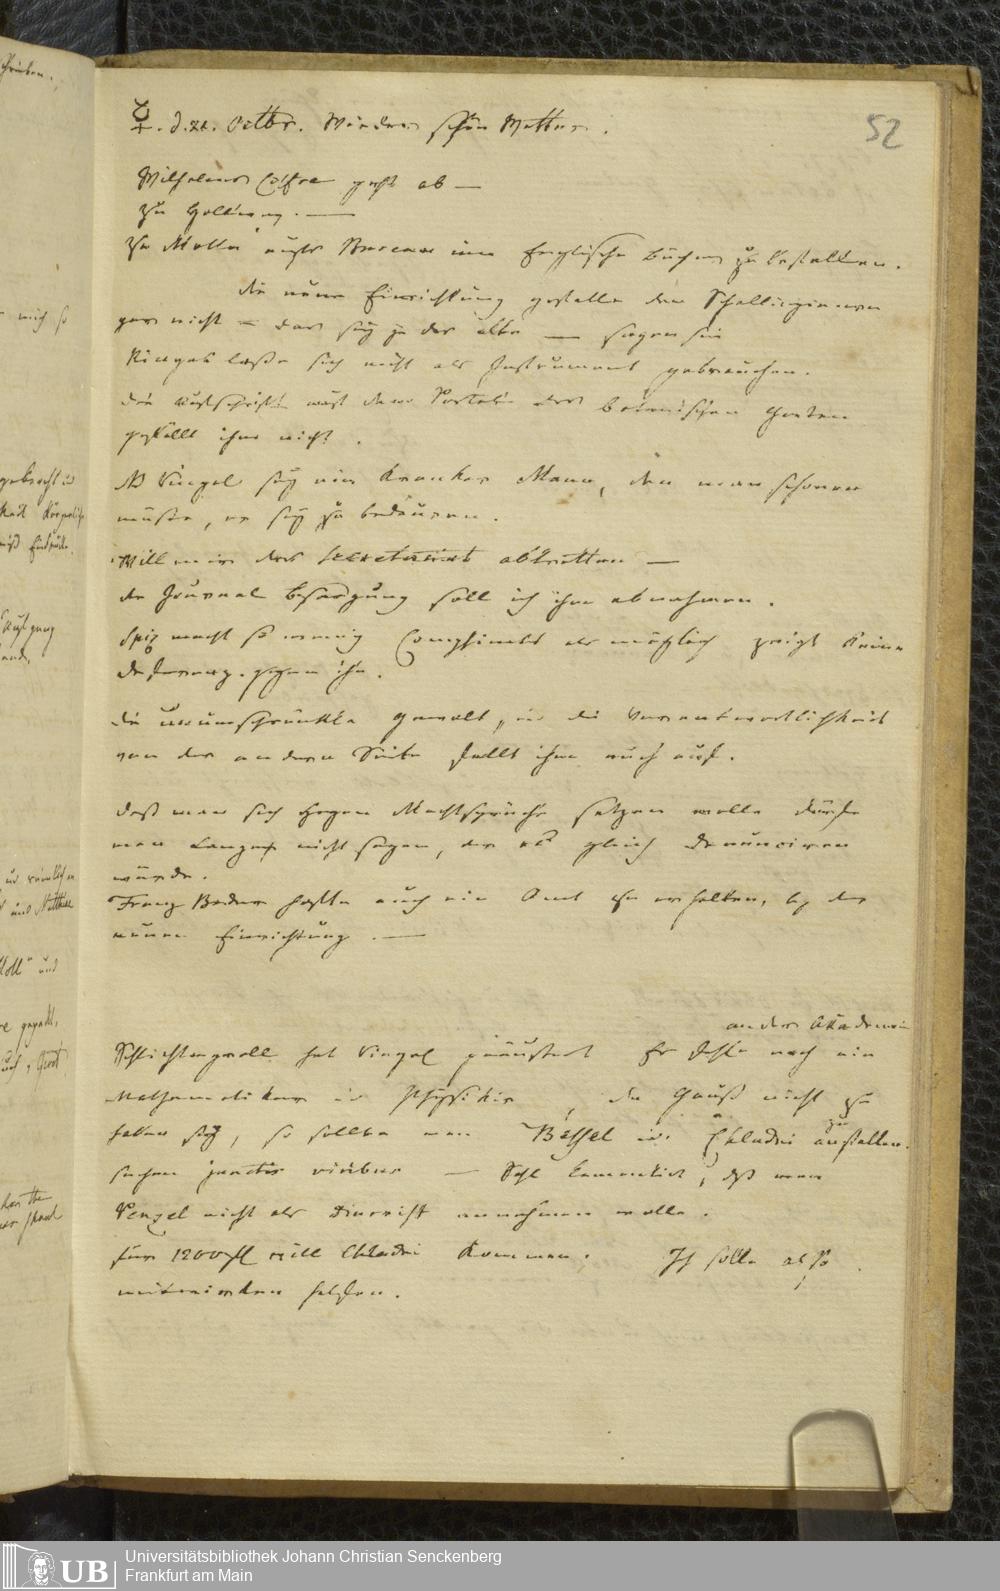 52
☿. d. 21. Octbr. Wieder schön Wetter.
Wilhelms Coffre geht ab —
zu Hollweg. —
zu Moll aufs Bureau um Englische Bücher zu bestellen.
die neue Einrichtung gefalle den Schellingianern
gar nicht — das sey ja das alte — sagen sie
Ringel laße sich nicht als Instrument gebrauchen.
die Aufschrift auf dem Portal des botanischen Garten
gefällt ihm nicht.
NB Ringel sey ein kranker Mann, den man schonen
müße, er sey zu bedauern.
Will mir das Secretariat abtretten —
die Journal Besorgung soll ich ihm abnehmen.
Spix macht so wenig Compliments als möglich zeigt keine
Deferenz gegen ihn.
die unumschränkte Gewalt, u die Verantwortlichkeit
von der andern Seite fällt ihm auch auf.
daß man sich gegen Machtsprüche setzen wolle dürfe
man Langer nicht sagen, der es gleich denunciren
würde.
Franz Bader hoffte auch ein Amt zu erhalten, bey der
neuen Einrichtung. —
an der Akademie
Schlichtegroll hat Ringel geäußert Es fehle noch ein
Mathematiker u Physiker, da Gauß nicht zu
haben sey, so sollte man Beßel u. Chladni anzustellen
suchen junctis viribus — Sehr bemerklich, daß man
Ringel nicht als Director annehmen wolle.
für 1200 fl will Chladni kommen. Ich solle also
mitwirken helfen.
UB
Universitätsbibliothek Johann Christian Senckenberg
Frankfurt am Main